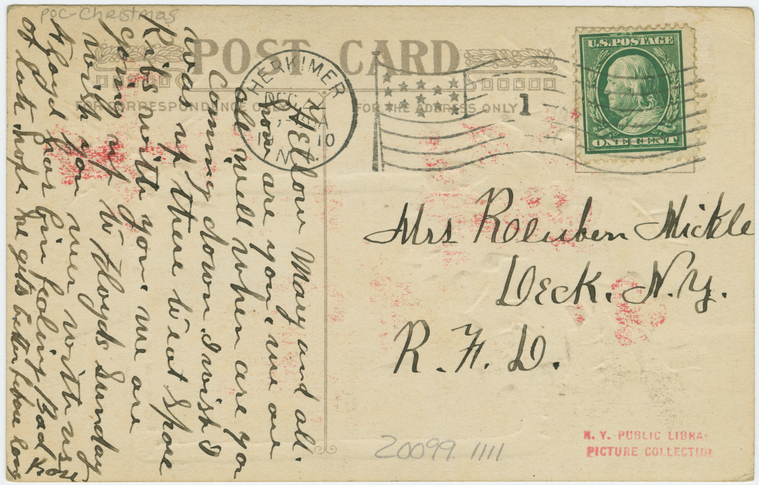 POC-Christmas
POST CARD
FOR CORRESPONDENCE
FOR THE ADDRESS ONLY
HERKIMER
DEC
10
N.Y.
1
U.S. POSTAGE
ONE CENT
Hellow Mary and all.
how are you. we are
all well when are you
Coming down I wish I
was up there to eat Spare
Ribs with you. we are
going up to Floyds Sunday
wish you wer with us
Floyd has bin feeling Bad
of late hope he gets better
Rose
Mrs Roeuben Mickle
Deck. N.Y.
R. F. D.
20099 1111
N. Y. PUBLIC LIBRA
PICTURE COLLECTION